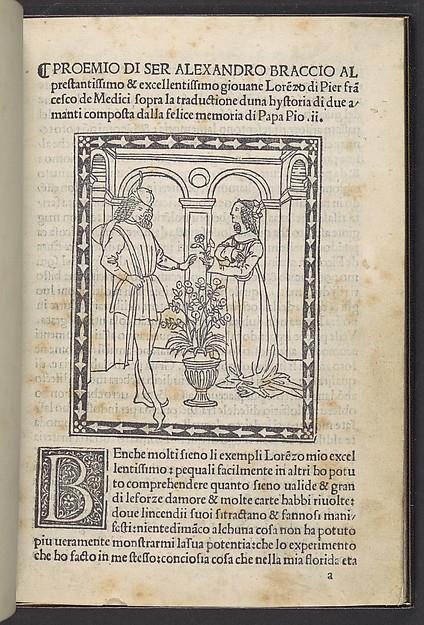 ¶PROEMIO DI SER ALEXANDRO BRACCIO AL
prestantissimo & excellentissimo giouane Lorẽzo di Pier frã
cesco de Medici sopra la traductione duna hystoria di due a/
manti composta dalla felice memoria di Papa Pio .ii.
BEnche molti sieno li exempli Lorẽzo mio excel
lentissimo: pe quali facilmente in altri ho potu
to comprehendere quanto sieno ualide & gran
di le forze damore & molte carte habbi riuolte:
doue lincendii suoi si tractano & fannosi mani/
festi: nientedimãco alchuna cosa non ha potuto
piu ueramente monstrarmi la sua potentia: che lo experimento
che ho facto in me stesso: conciosia cosa che nella mia florida eta
a